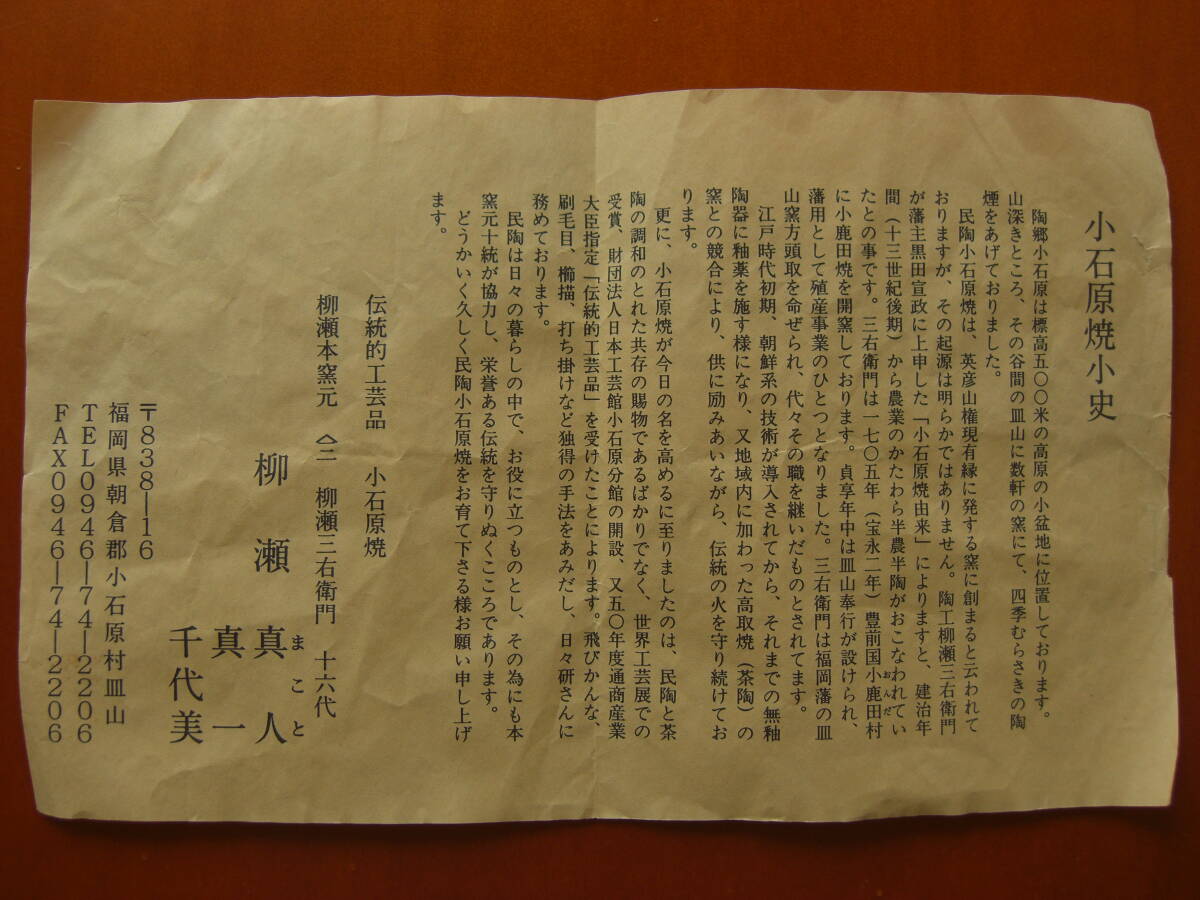 小石原焼小史
陶郷小石原は標高五〇〇米の高原の小盆地に位置しております。
山深きところ、その谷間の皿山に数軒の窯にて、四季むらさきの陶
煙をあげておりました。
民陶小石原焼は、英彦山権現有縁に発する窯に創まると云われて
おりますが、その起源は明らかではありません。陶工柳瀬三右衛門
が藩主黒田宣政に上申した「小石原焼由来」によりますと、建治年
間（十三世紀後期）から農業のかたわら半農半陶がおこなわれてい
たとの事です。三右衛門は一七〇五年（宝永二年）豊前国小鹿田村
おんだ
に小鹿田焼を開窯しております。貞享年中は皿山奉行が設けられ、
藩用として殖産事業のひとつとなりました。三右衛門は福岡藩の皿
山窯方頭取を命ぜられ、代々その職を継いだものとされてます。
江戸時代初期、朝鮮系の技術が導入されてから、それまでの無釉
陶器に釉薬を施す様になり、又地域内に加わった高取焼（茶陶）の
窯との競合により、供に励みあいながら、伝統の火を守り続けてお
ります。
更に、小石原焼が今日の名を高めるに至りましたのは、民陶と茶
陶の調和のとれた共存の賜物であるばかりでなく、世界工芸展での
受賞、財団法人日本工芸館小石原分館の開設、又五〇年度通商産業
大臣指定「伝統的工芸品」を受けたことによります。飛びかんな、
刷毛目、櫛描、打ち掛けなど独得の手法をあみだし、日々研さんに
務めております。
民陶は日々の暮らしの中で、お役に立つものとし、その為にも本
窯元十統が協力し、栄誉ある伝統を守りぬくこころであります。
どうかいく久しく民陶小石原焼をお育て下さる様お願い申し上げ
ます。
伝統的工芸品 小石原焼
柳瀬本窯元 柳瀬三右衛門 十六代
柳瀬真人
まこと
真一
千代美
〒838―16
福岡県朝倉郡小石原村皿山
TEL0946―74―2206
FAX0946―74―2206